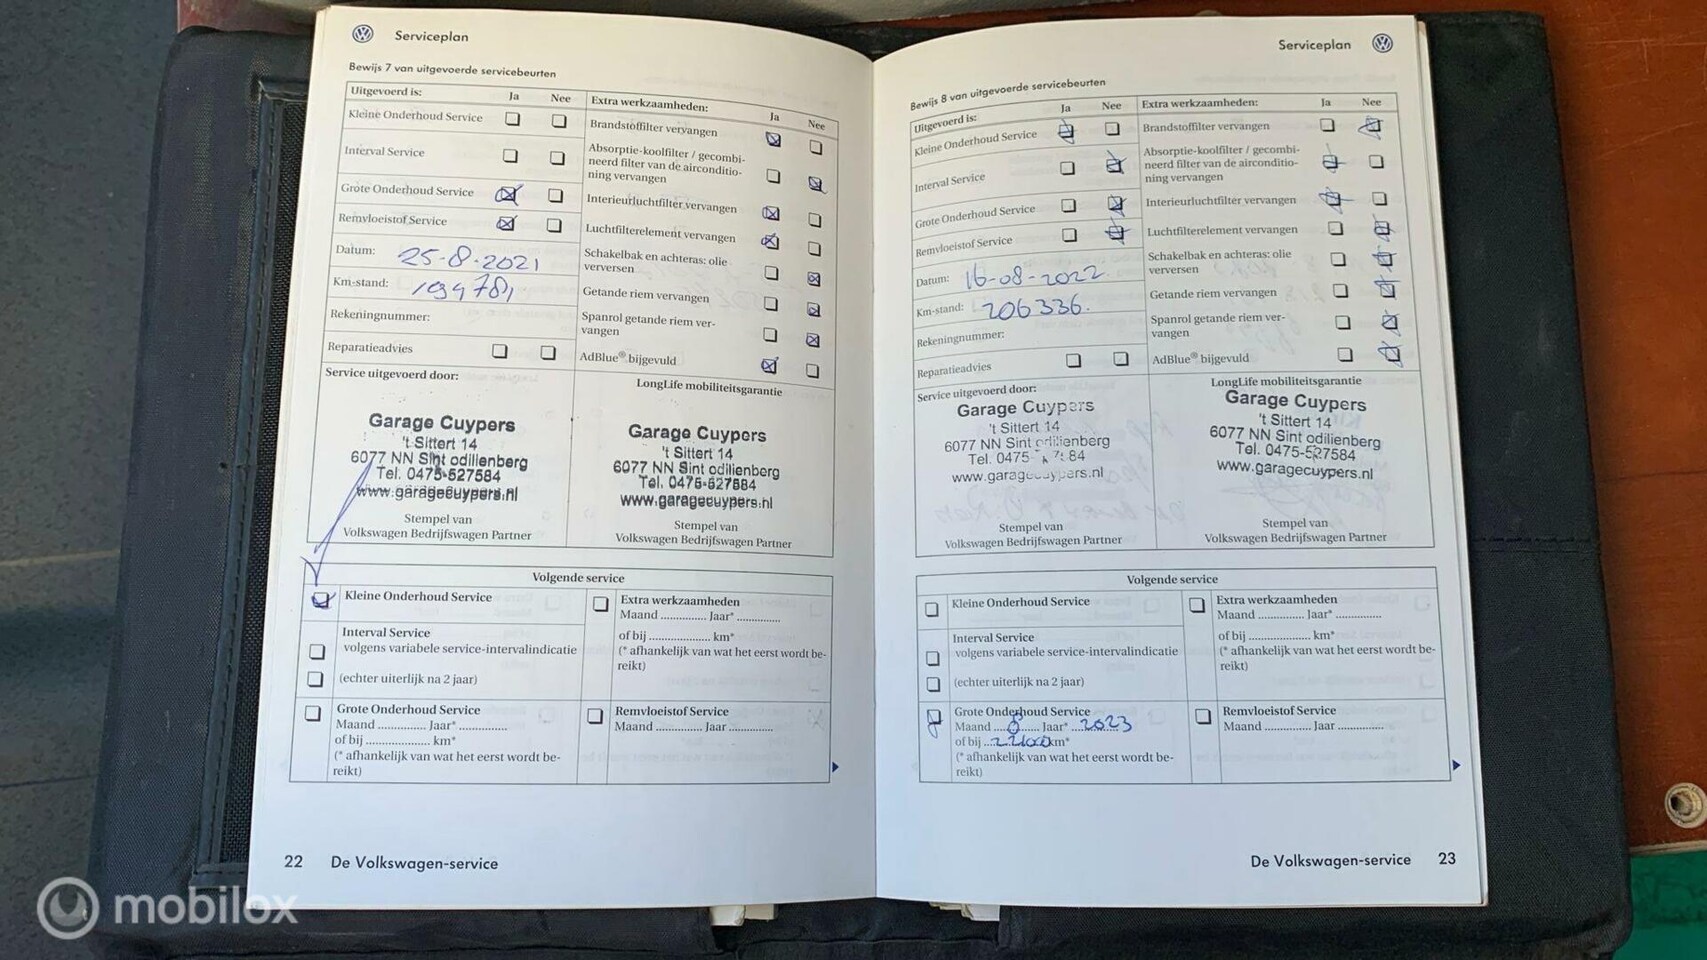 Serviceplan
Bewijs 7 van uitgevoerde servicebeurten
Uitgevoerd is: Ja Nee
Kleine Onderhoud Service
Interval Service
Grote Onderhoud Service
Remvloeistof Service
Datum: 25-8-2021
Km-stand: 194781
Rekeningnummer:
Reparatieadvies
Extra werkzaamheden: Ja Nee
Brandstoffilter vervangen
Absorptie-koolfilter / gecombi-
neerd filter van de airconditio-
ning vervangen
Interieurluchtfilter vervangen
Luchtfilterelement vervangen
Schakelbak en achteras: olie
verversen
Getande riem vervangen
Spanrol getande riem ver-
vangen
AdBlue® bijgevuld
Service uitgevoerd door:
Garage Cuypers
't Sittert 14
6077 NN Sint odilienberg
Tel. 0475-527584
www.garagecuypers.nl
Stempel van
Volkswagen Bedrijfswagen Partner
LongLife mobiliteitsgarantie
Garage Cuypers
't Sittert 14
6077 NN Sint odilienberg
Tel. 0475-527584
www.garagecuypers.nl
Stempel van
Volkswagen Bedrijfswagen Partner
Volgende service
Kleine Onderhoud Service
Interval Service
volgens variabele service-intervalindicatie
(echter uiterlijk na 2 jaar)
Grote Onderhoud Service
Maand .............. Jaar* ..............
of bij .................... km*
(* afhankelijk van wat het eerst wordt be-
reikt)
Extra werkzaamheden
Maand .............. Jaar* ..............
of bij .................... km*
(* afhankelijk van wat het eerst wordt be-
reikt)
Remvloeistof Service
Maand .............. Jaar ..............
22 De Volkswagen-service
Serviceplan
Bewijs 8 van uitgevoerde servicebeurten
Uitgevoerd is: Ja Nee
Kleine Onderhoud Service
Interval Service
Grote Onderhoud Service
Remvloeistof Service
Datum: 16-08-2022
Km-stand: 206336.
Rekeningnummer:
Reparatieadvies
Extra werkzaamheden: Ja Nee
Brandstoffilter vervangen
Absorptie-koolfilter / gecombi-
neerd filter van de airconditio-
ning vervangen
Interieurluchtfilter vervangen
Luchtfilterelement vervangen
Schakelbak en achteras: olie
verversen
Getande riem vervangen
Spanrol getande riem ver-
vangen
AdBlue® bijgevuld
Service uitgevoerd door:
Garage Cuypers
't Sittert 14
6077 NN Sint odilienberg
Tel. 0475
www.garagecuypers.nl
Stempel van
Volkswagen Bedrijfswagen Partner
LongLife mobiliteitsgarantie
Garage Cuypers
't Sittert 14
6077 NN Sint odilienberg
Tel. 0475-527584
www.garagecuypers.nl
Stempel van
Volkswagen Bedrijfswagen Partner
Volgende service
Kleine Onderhoud Service
Interval Service
volgens variabele service-intervalindicatie
(echter uiterlijk na 2 jaar)
Grote Onderhoud Service
Maand 8 Jaar* 2023
of bij km*
(* afhankelijk van wat het eerst wordt be-
reikt)
Extra werkzaamheden
Maand .............. Jaar* ..............
of bij .................... km*
(* afhankelijk van wat het eerst wordt be-
reikt)
Remvloeistof Service
Maand .............. Jaar ..............
De Volkswagen-service 23
mobilox